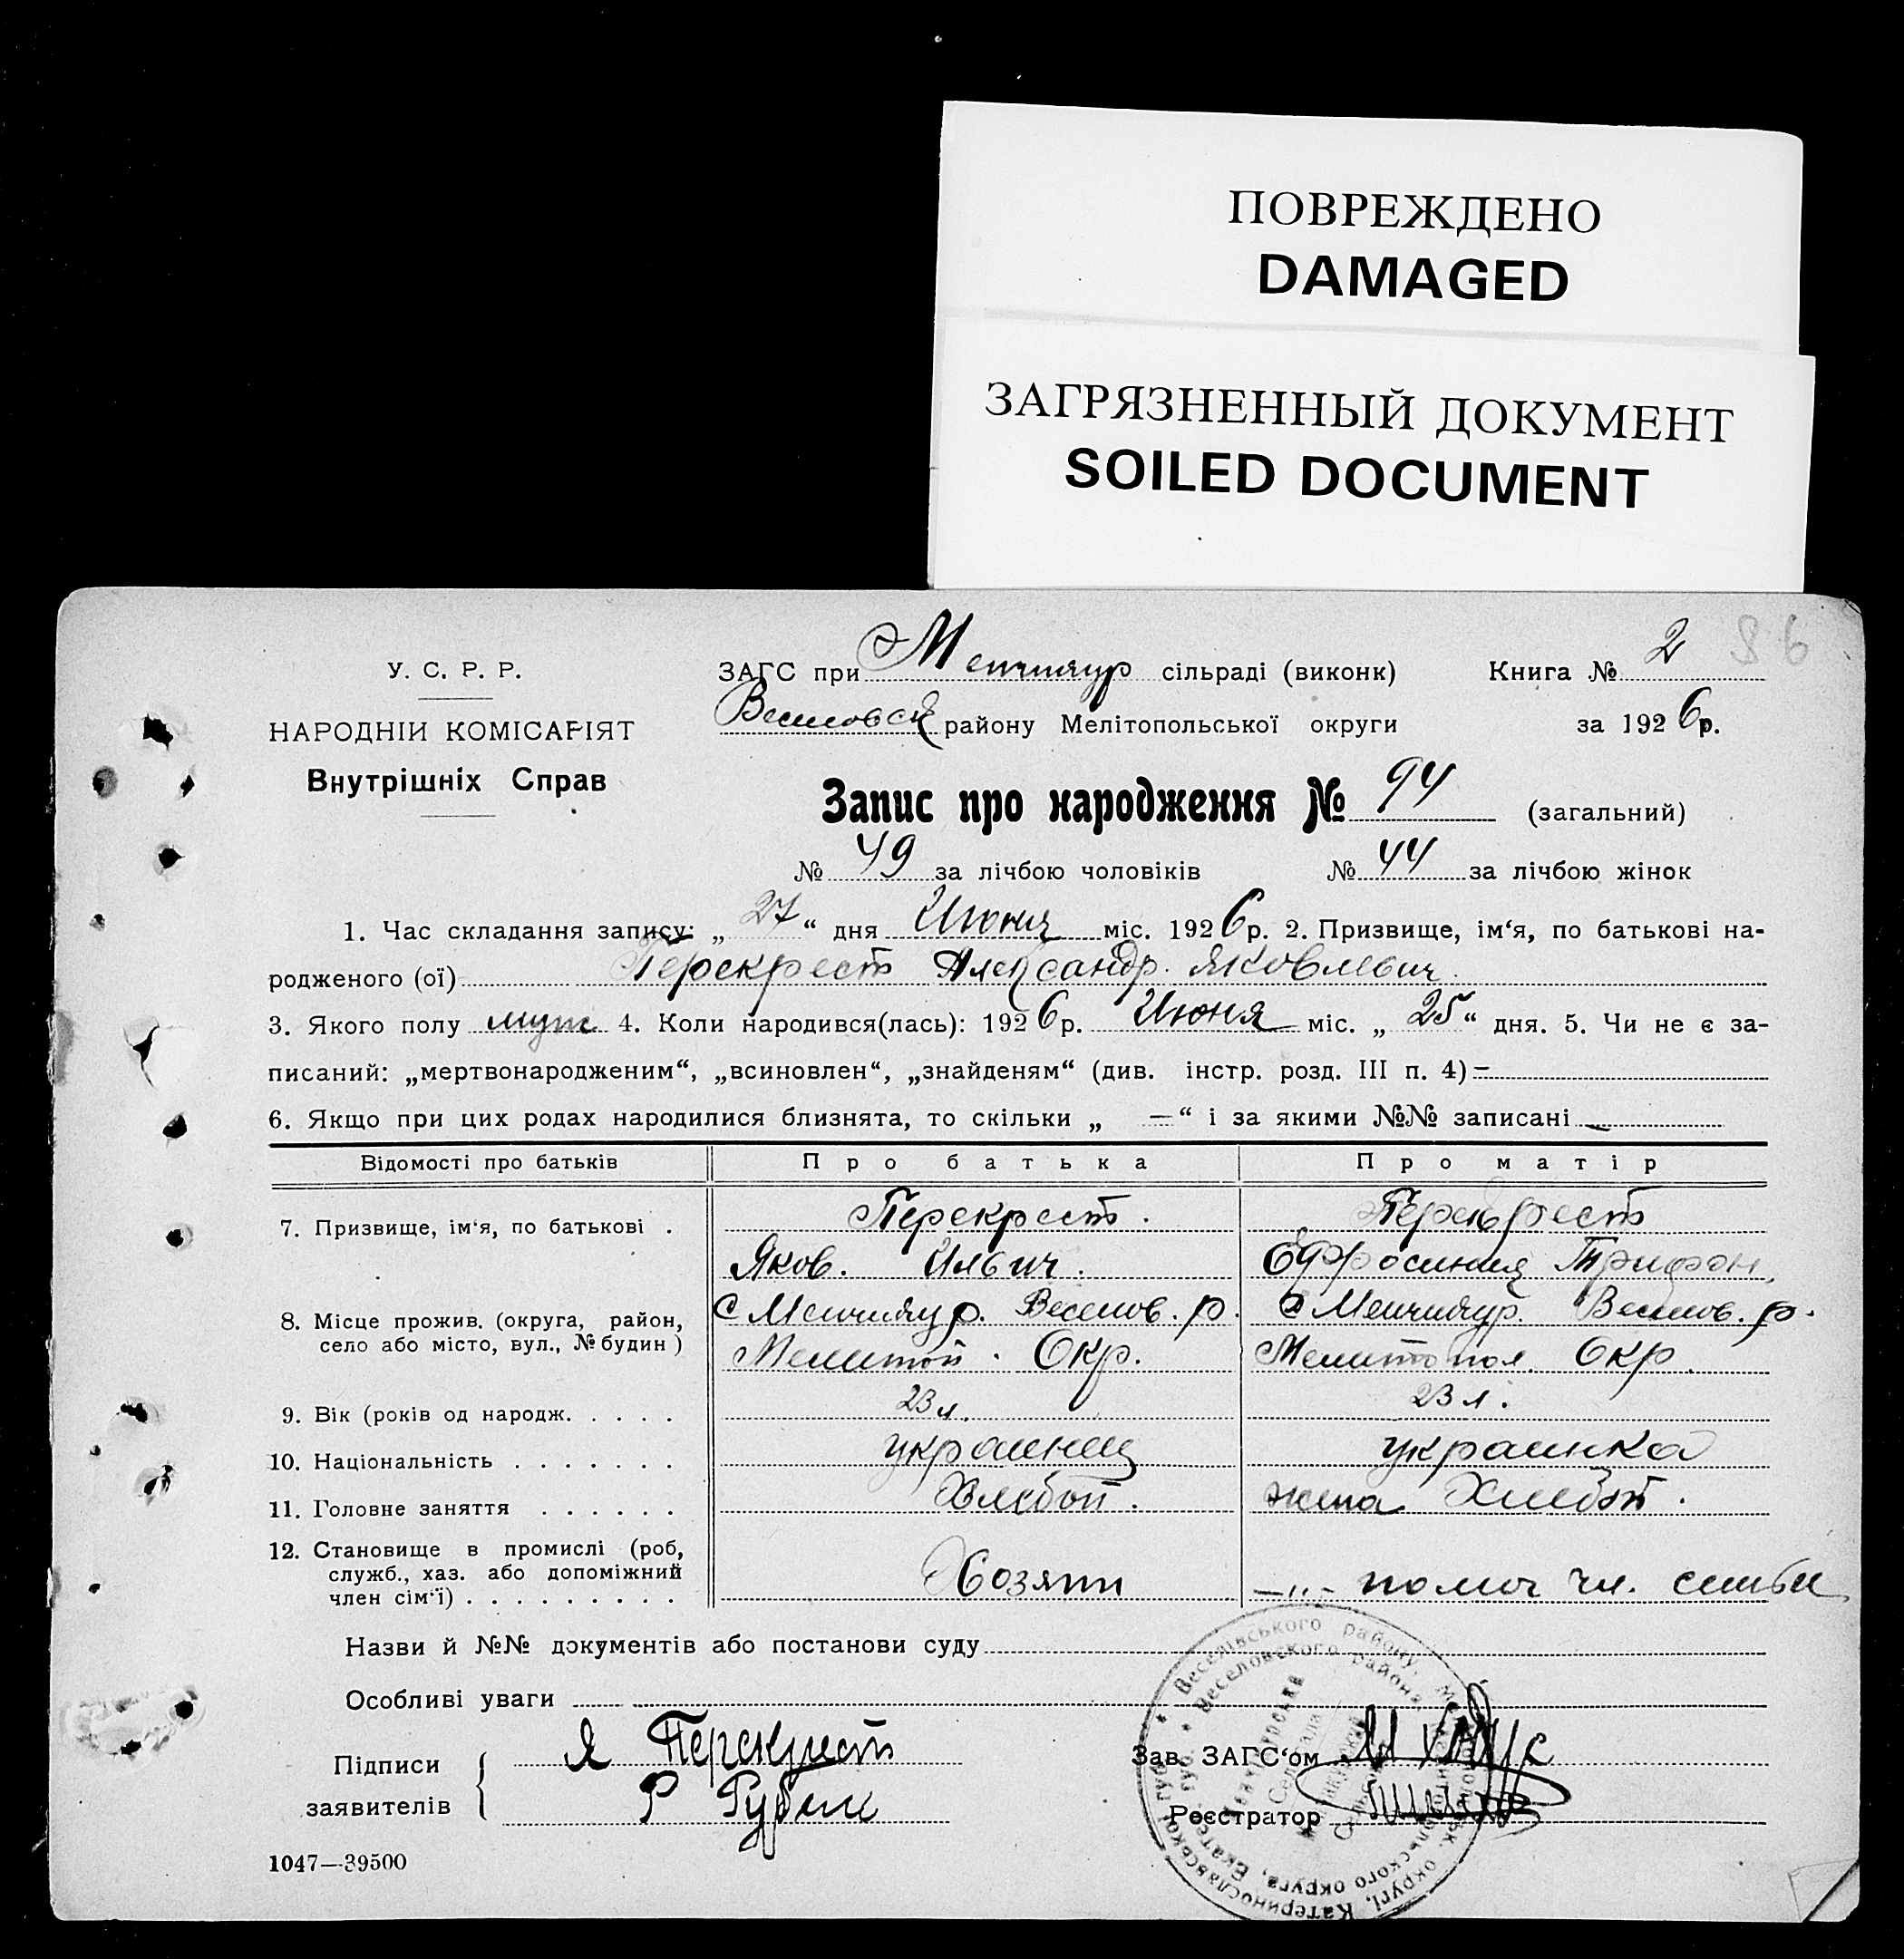 ПОВРЕЖДЕНО
DAMAGED
ЗАГРЯЗНЕННЫЙ ДОКУМЕНТ
SOILED DOCUMENT
У. С. Р. Р.
НАРОДНІЙ КОМІСАРІЯТ
Внутрішніх Справ
ЗАГС при Менчикур сільраді (виконк) Книга № 2 86
Веселовск району Мелітопольської округи за 1926р.
Запис про народження № 94 (загальний)
№ 49 за лічбою чоловіків № 44 за лічбою жінок
1. Час складання запису: „27“ дня Июня міс. 1926р. 2. Призвище, ім‘я, по батькові на-
родженого (ої) Перекрест Александр Яковлевич
3. Якого полу муж 4. Коли народився(лась): 1926р. Июня міс. „25“ дня. 5. Чи не є за-
писаний: „мертвонародженим“, „всиновлен“, „знайденям“ (див. інстр. розд. III п. 4) —
6. Якщо при цих родах народилися близнята, то скільки „ — “ і за якими №№ записані —
Відомості про батьків Про батька Про матір
7. Призвище, ім‘я, по батькові . Перекрест. Перекрест
Яков. Ильич. Ефросиния Трифон.
8. Місце прожив. (округа, район, село або місто, вул., № будин) с Менчикур. Веселов. р. с Менчикур. Веселов. р.
Мелитоп. Окр. Мелитопол. Окр.
9. Вік (років од народж. . . . . 23 л. 23 л.
10. Національність . . . . . . . украинец украинка
11. Головне заняття . . . . . . Хлебоп. жена Хлебоп.
12. Становище в промислі (роб, служб., хаз. або допоміжний член сім‘ї) . . . . . . . . . Хозяин —"— помоч чл. семьи
Назви й №№ документів або постанови суду
Особливі уваги
Підписи заявителів { Я Перекрест
Р
Зав. ЗАГС‘ом
Реєстратор
Веселівського району, округи, Катеринославської губ.
Веселовского района, округа, Екатер. губ.
1047—39500